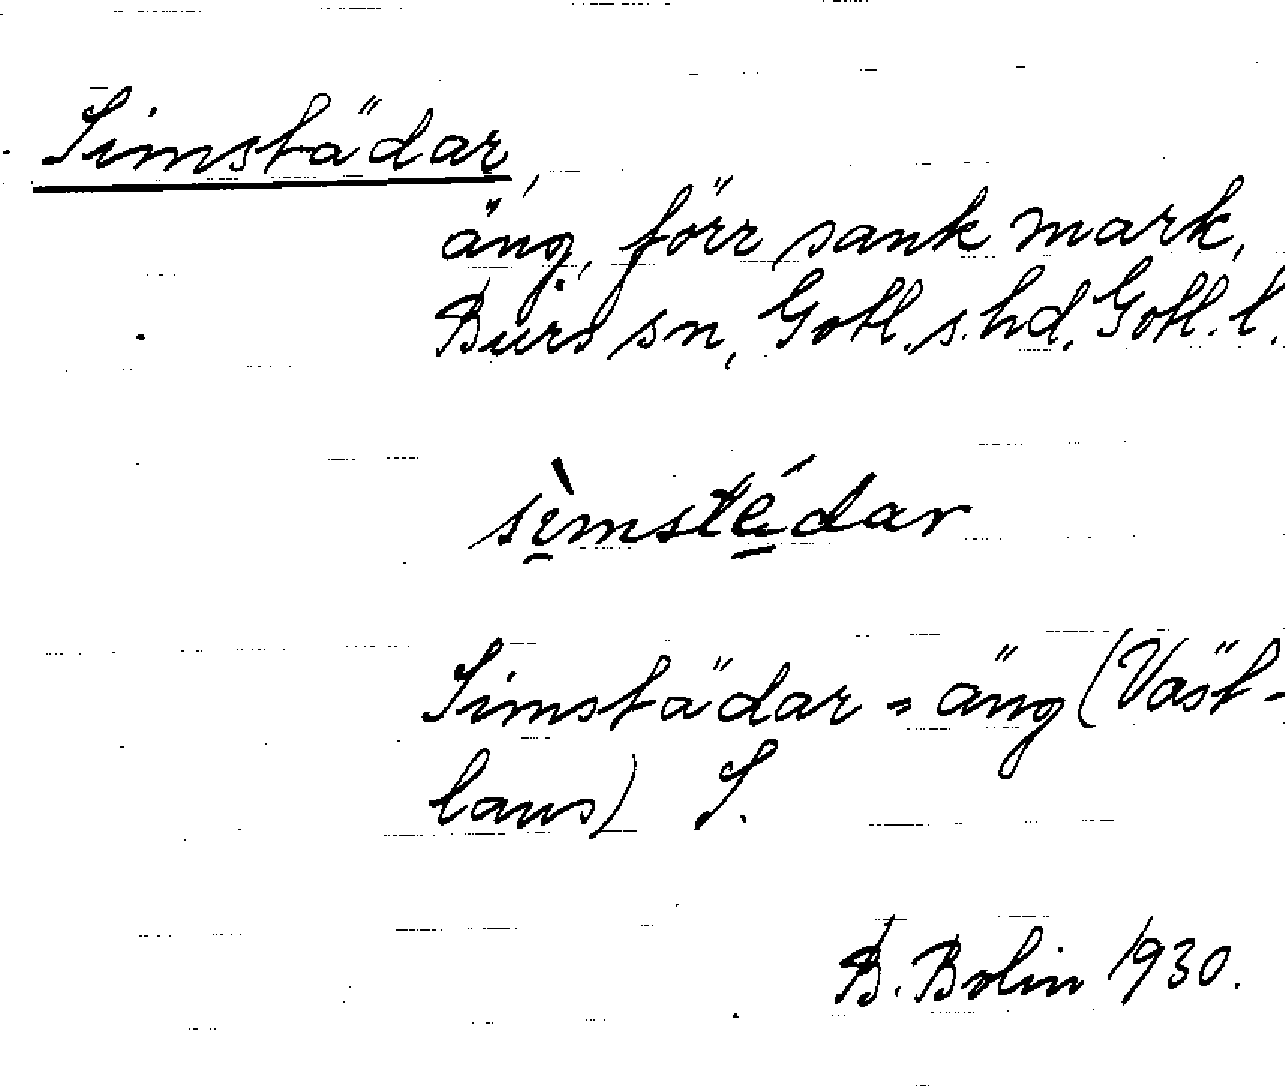 Simstädar,
äng, förr sank mark,
Burs sn, Gotl. s. hd. Gotl. l.
sìmstédar
Simstädar = äng (Väst-
laus) S.
B. Bolin 1930.